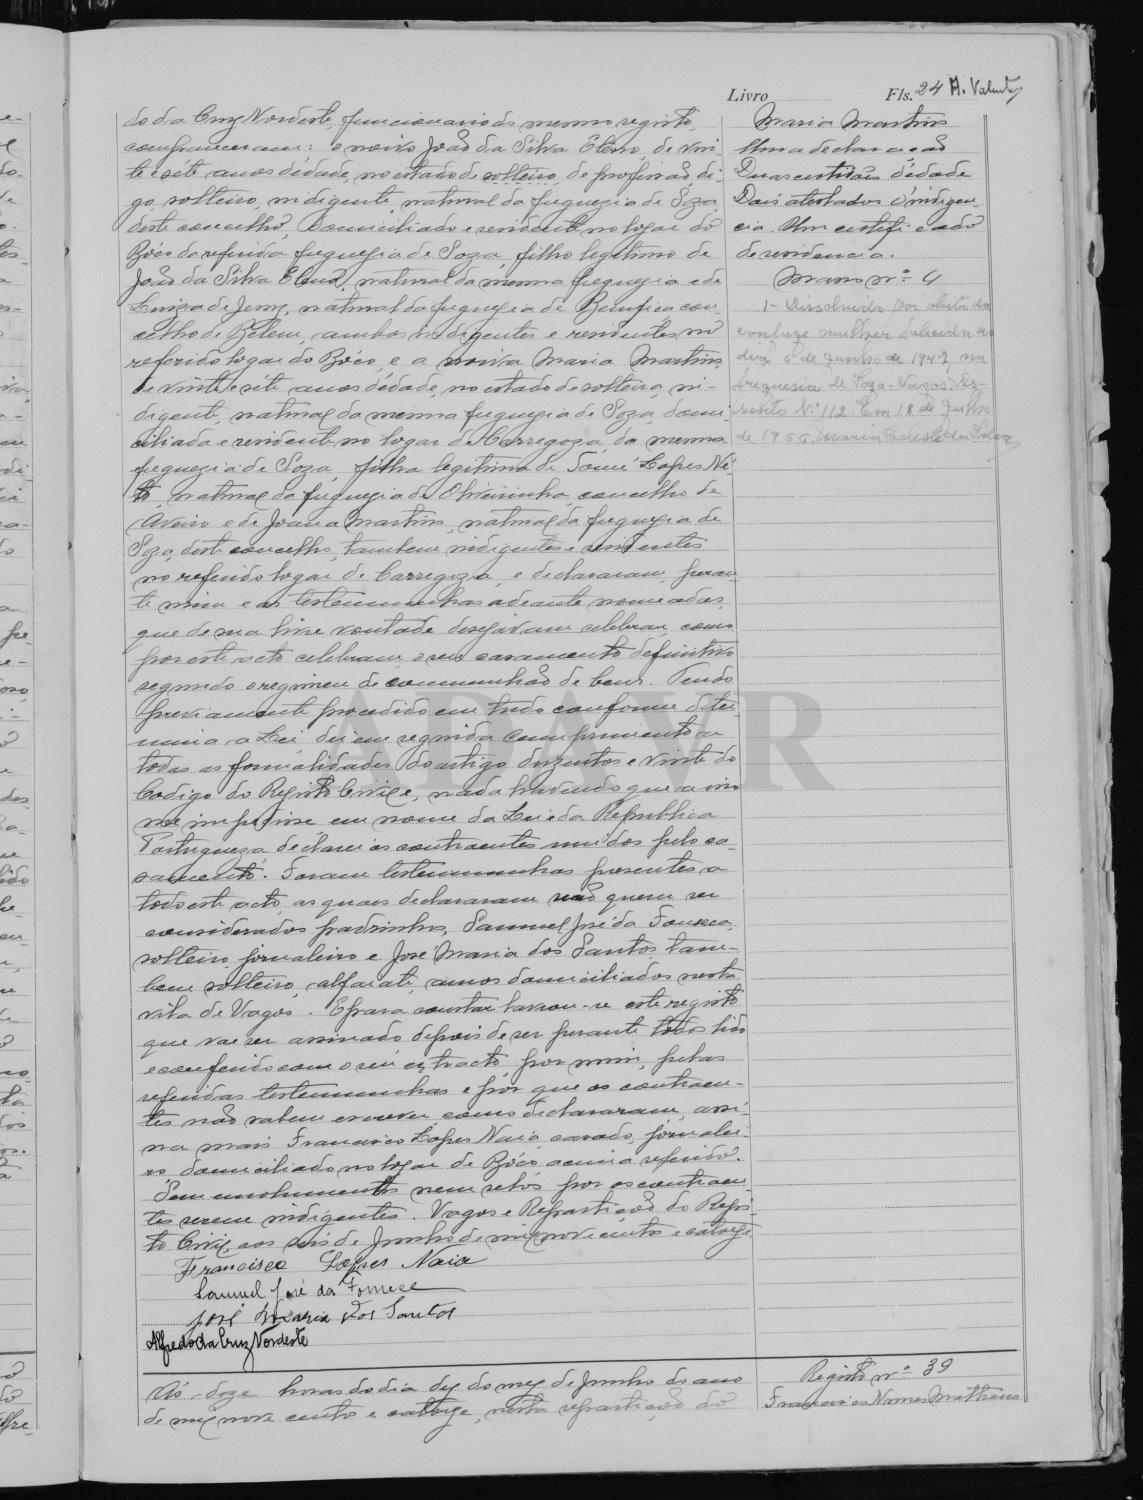 Livro Fls. 24 A. Valente
do da Cruz Nordeste, funcionario do mesmo registo,
compareceram: o noivo João da Silva Eleno, de vin-
te e séte anos d'édade, no estado de solteiro, de profissão, di-
go, solteiro, indigente, natural da freguezia de Soza,
deste concelho, domiciliado e residente no logar do
Bóco da referida freguezia de Soza, filho legitimo de
João da Silva Eleno, natural da mesma freguezia e de
Luiza de Jesus, natural da freguezia de Bemfica con-
celho de Belem, ambos indigentes e residentes no
referido logar do Bóco, e a noiva Maria Martins,
de vinte e séte anos d'édade, no estado de solteira, in-
digente, natural da mesma freguezia de Soza, domi-
ciliada e residente no logar de Carregoza, da mesma
freguezia de Soza, filha legitima de Tomé Lopes Né-
to, natural da freguezia de Oliveirinha, concelho de
Aveiro e de Joana Martins, natural da freguezia de
Soza, deste concelho, tambem indigentes e residentes
no referido logar de Carregoza, e declararam, peran-
te mim e as testemunhas adeante nomeadas,
que de sua livre vontade desejavam celebrar, como
por este acto celebram, o seu casamento definitivo
segundo o regimen de communhão de bens. Tendo
previamente procedido em tudo conforme deter-
mina a Lei, dei em seguida cumprimento a
todas as formalidades do artigo duzentos e vinte do
Codigo do Registo Civil e, nada havendo que a isso
me impedisse em nome da Lei e da Republica
Portugueza, declarei os contraentes unidos pelo ca-
samento. Foram testemunhas presentes a
todo este acto, as quaes declararam não querer ser
considerados padrinhos, Samuel José da Fonseca,
solteiro, jornaleiro e José Maria dos Santos, tam-
bem solteiro, alfaiate, amos domiciliados nesta
vila de Vagos. E para constar lavrou-se este registo
que vae ser assinado depois de ser perante todos lido
e conferido com o seu extracto, por mim, pelas
referidas testemunhas e por que os contraen-
tes não sabem escrever, como declararam, assi-
na mais Francisco Lopes Naia, casado, jornalei-
ro, domiciliado no logar de Bóco, acima referido.
Sem emolumentos nem selos por os contraen
tes serem indigentes. Vagos e Repartição do Regis-
to Civil, aos seis de Junho de mil nove centos e catorze
Francisco Lopes Naia
Samuel José da Fonseca
José Maria dos Santos
Alfredo da Cruz Nordeste
Ás doze horas do dia dez do mez de Junho do ano
de mil nove centos e catorze, nesta repartição do
Maria Martins
Uma declaração
Duas certidões d'édade
Dois atestados d'indigen
cia. Um certificado
de residencia.
Masso nº 4
1- Dissolvido por obito do
conjuge mulher falecida no
dia 5 de Junho de 1947, na
freguesia de Soza-Vagos.
Nº 112. Em 18 de Julho
de 1955. Maria Celeste da Silva
Registo nº 39
Francisco Nunes Matheus
ADAVR